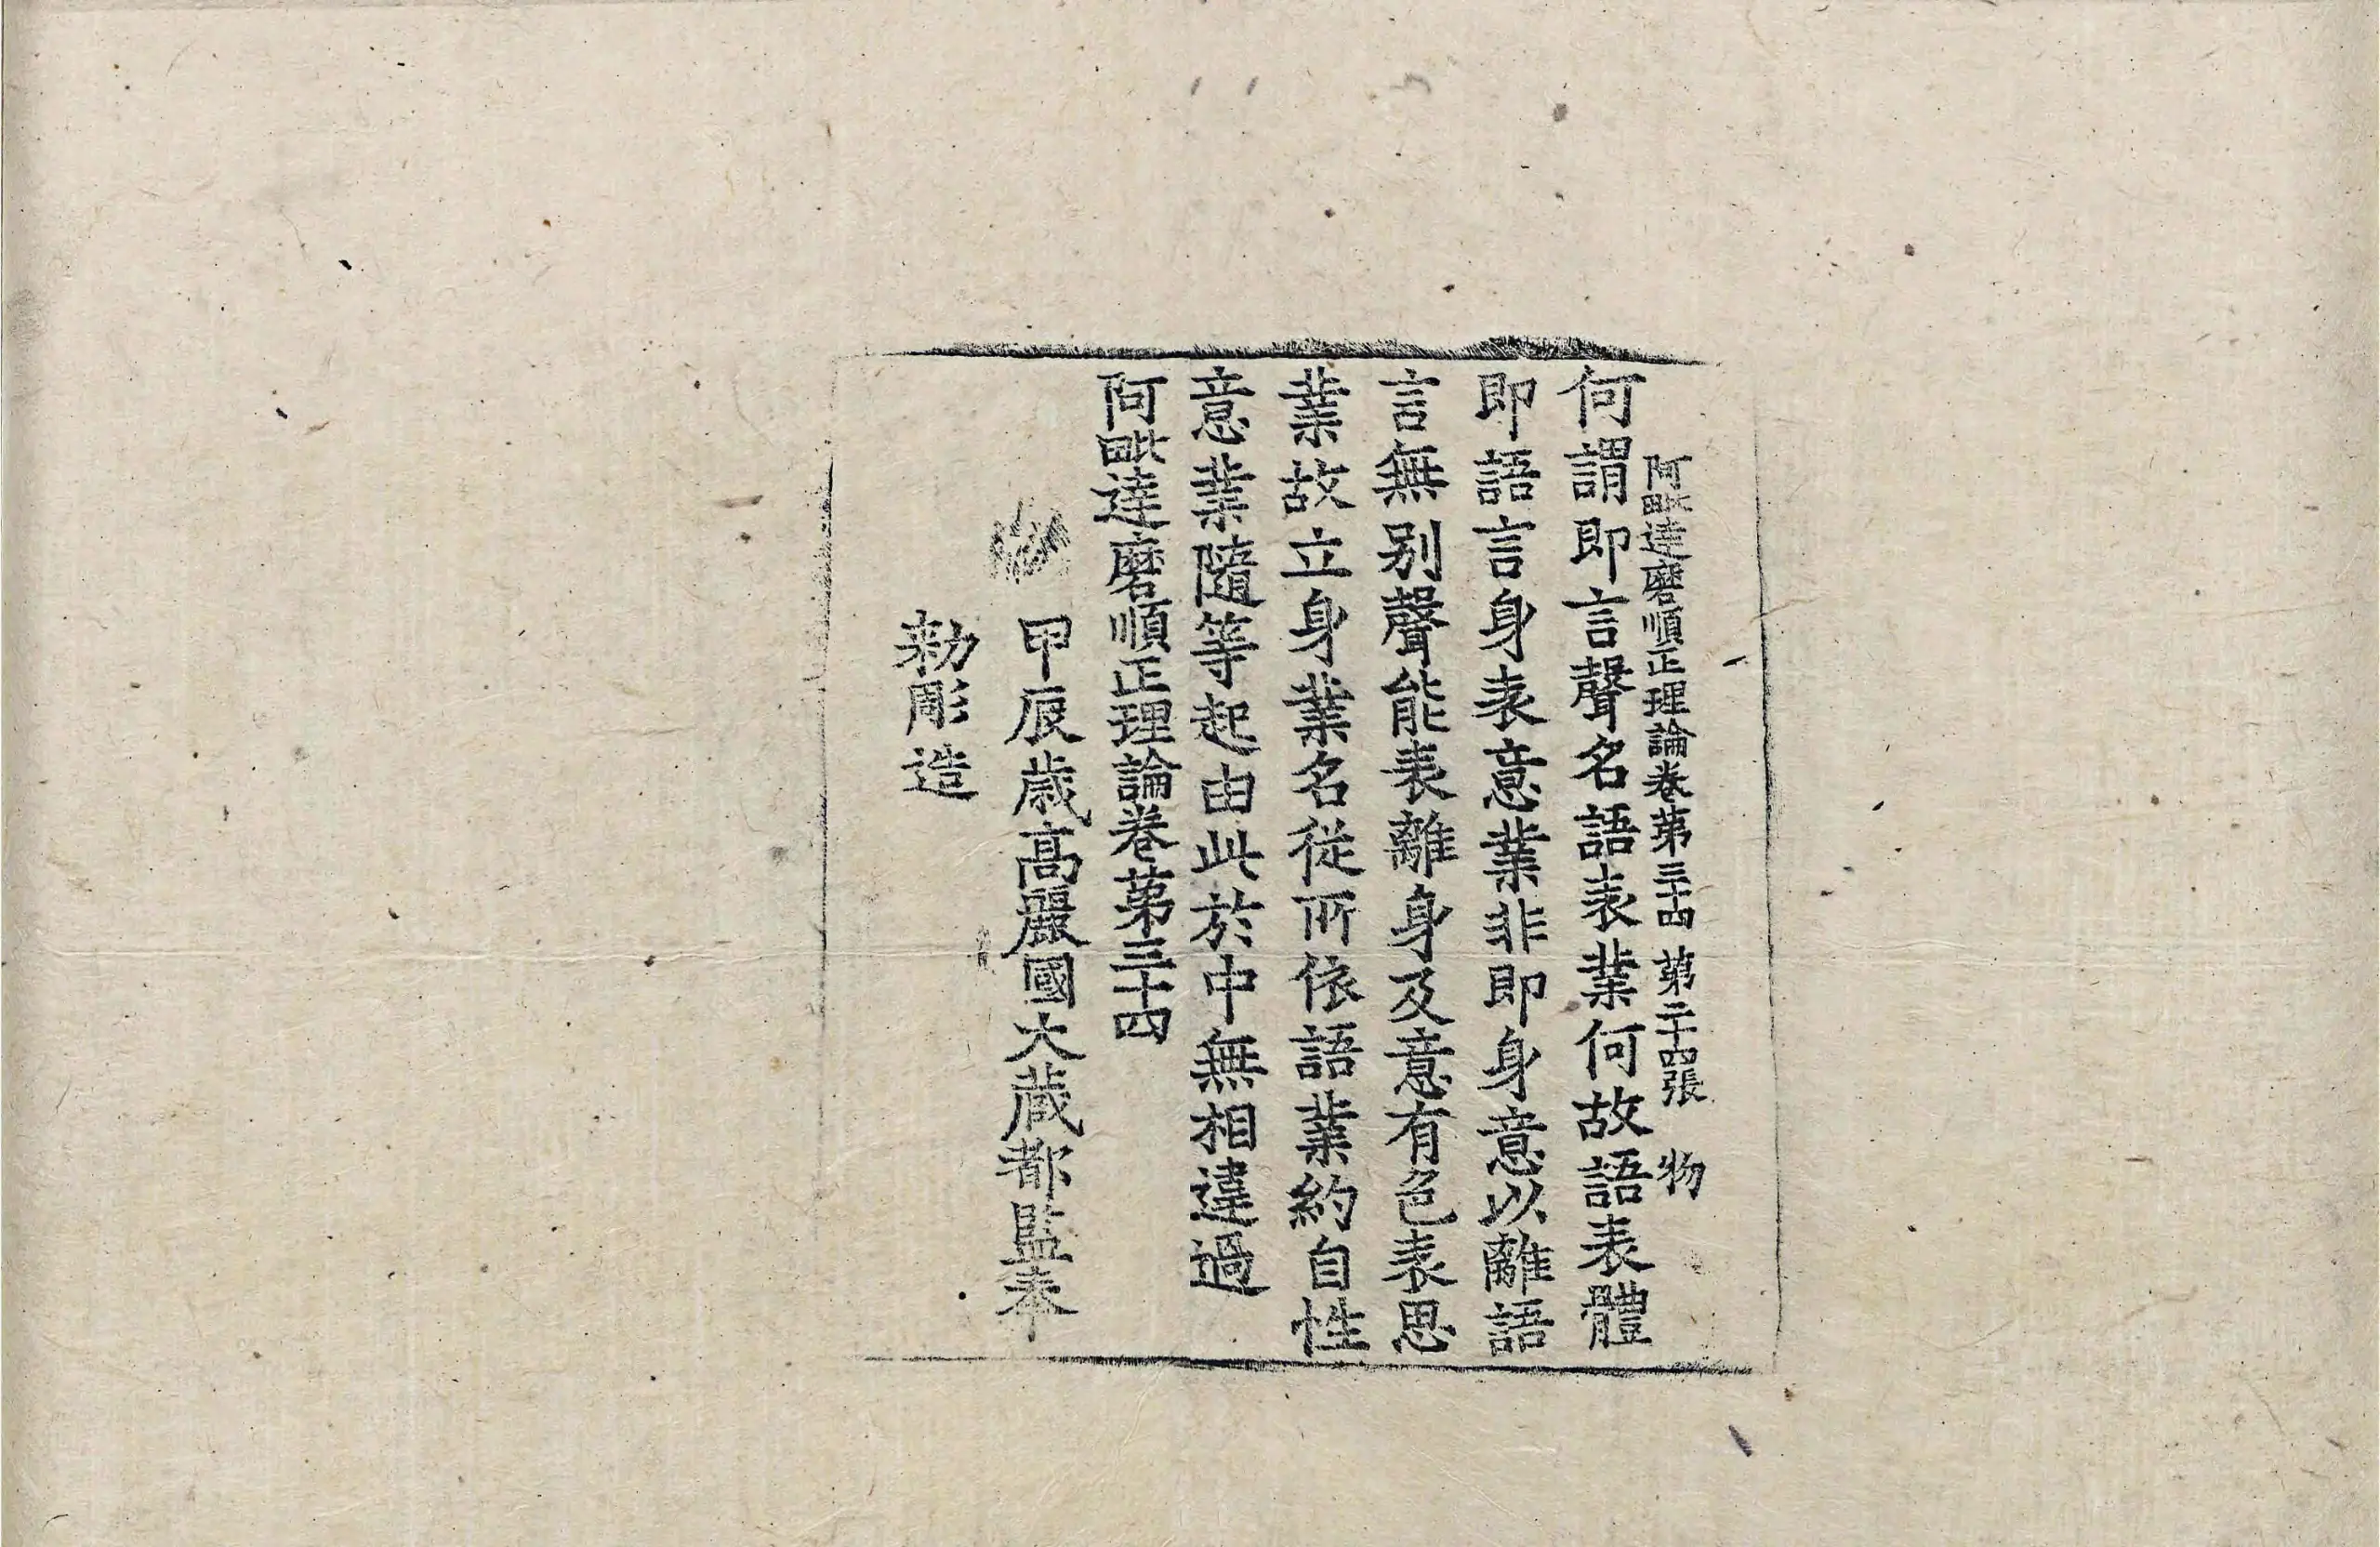 阿毗達磨順正理論卷第三十四 第二十四張 物
何謂即言聲名語表業何故語表體
即語言身表意業非即身意以離語
言無别聲能表離身及意有色表思
業故立身業名從所依語業約自性
意業隨等起由此於中無相違過
阿毗達磨順正理論卷第三十四
甲辰歲高麗國大藏都監奉
勅彫造